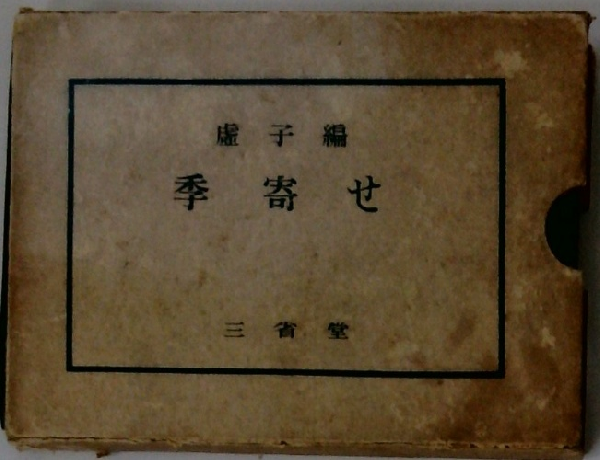 虛子編
季寄せ
三省堂